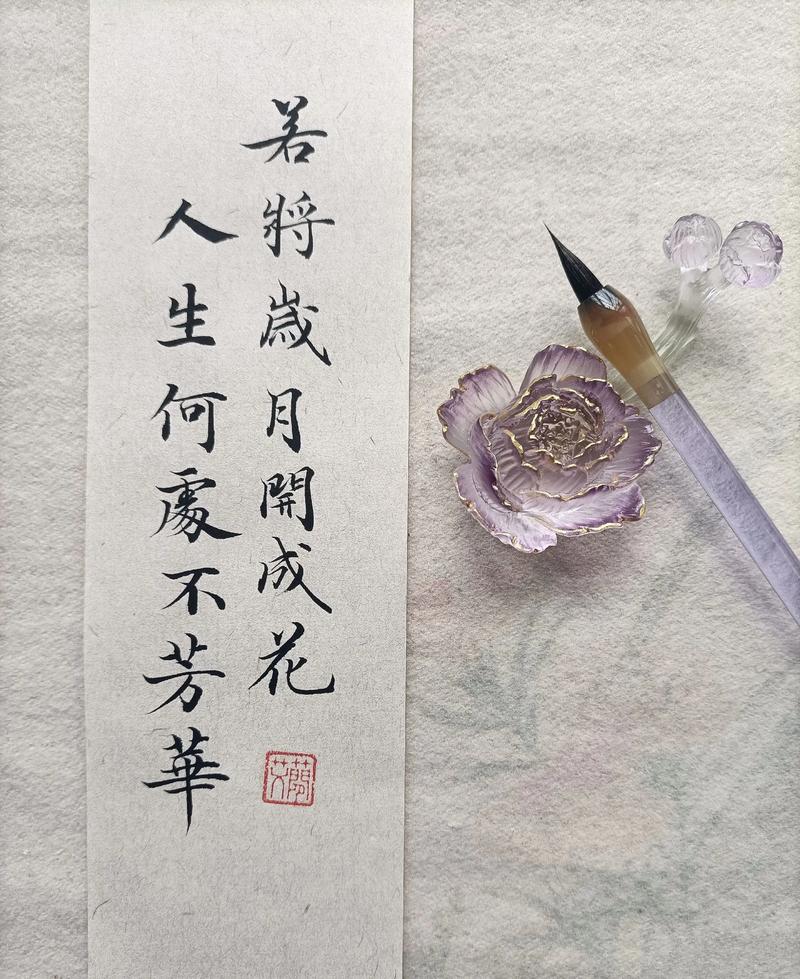 若將歲月開成花
人生何處不芳華